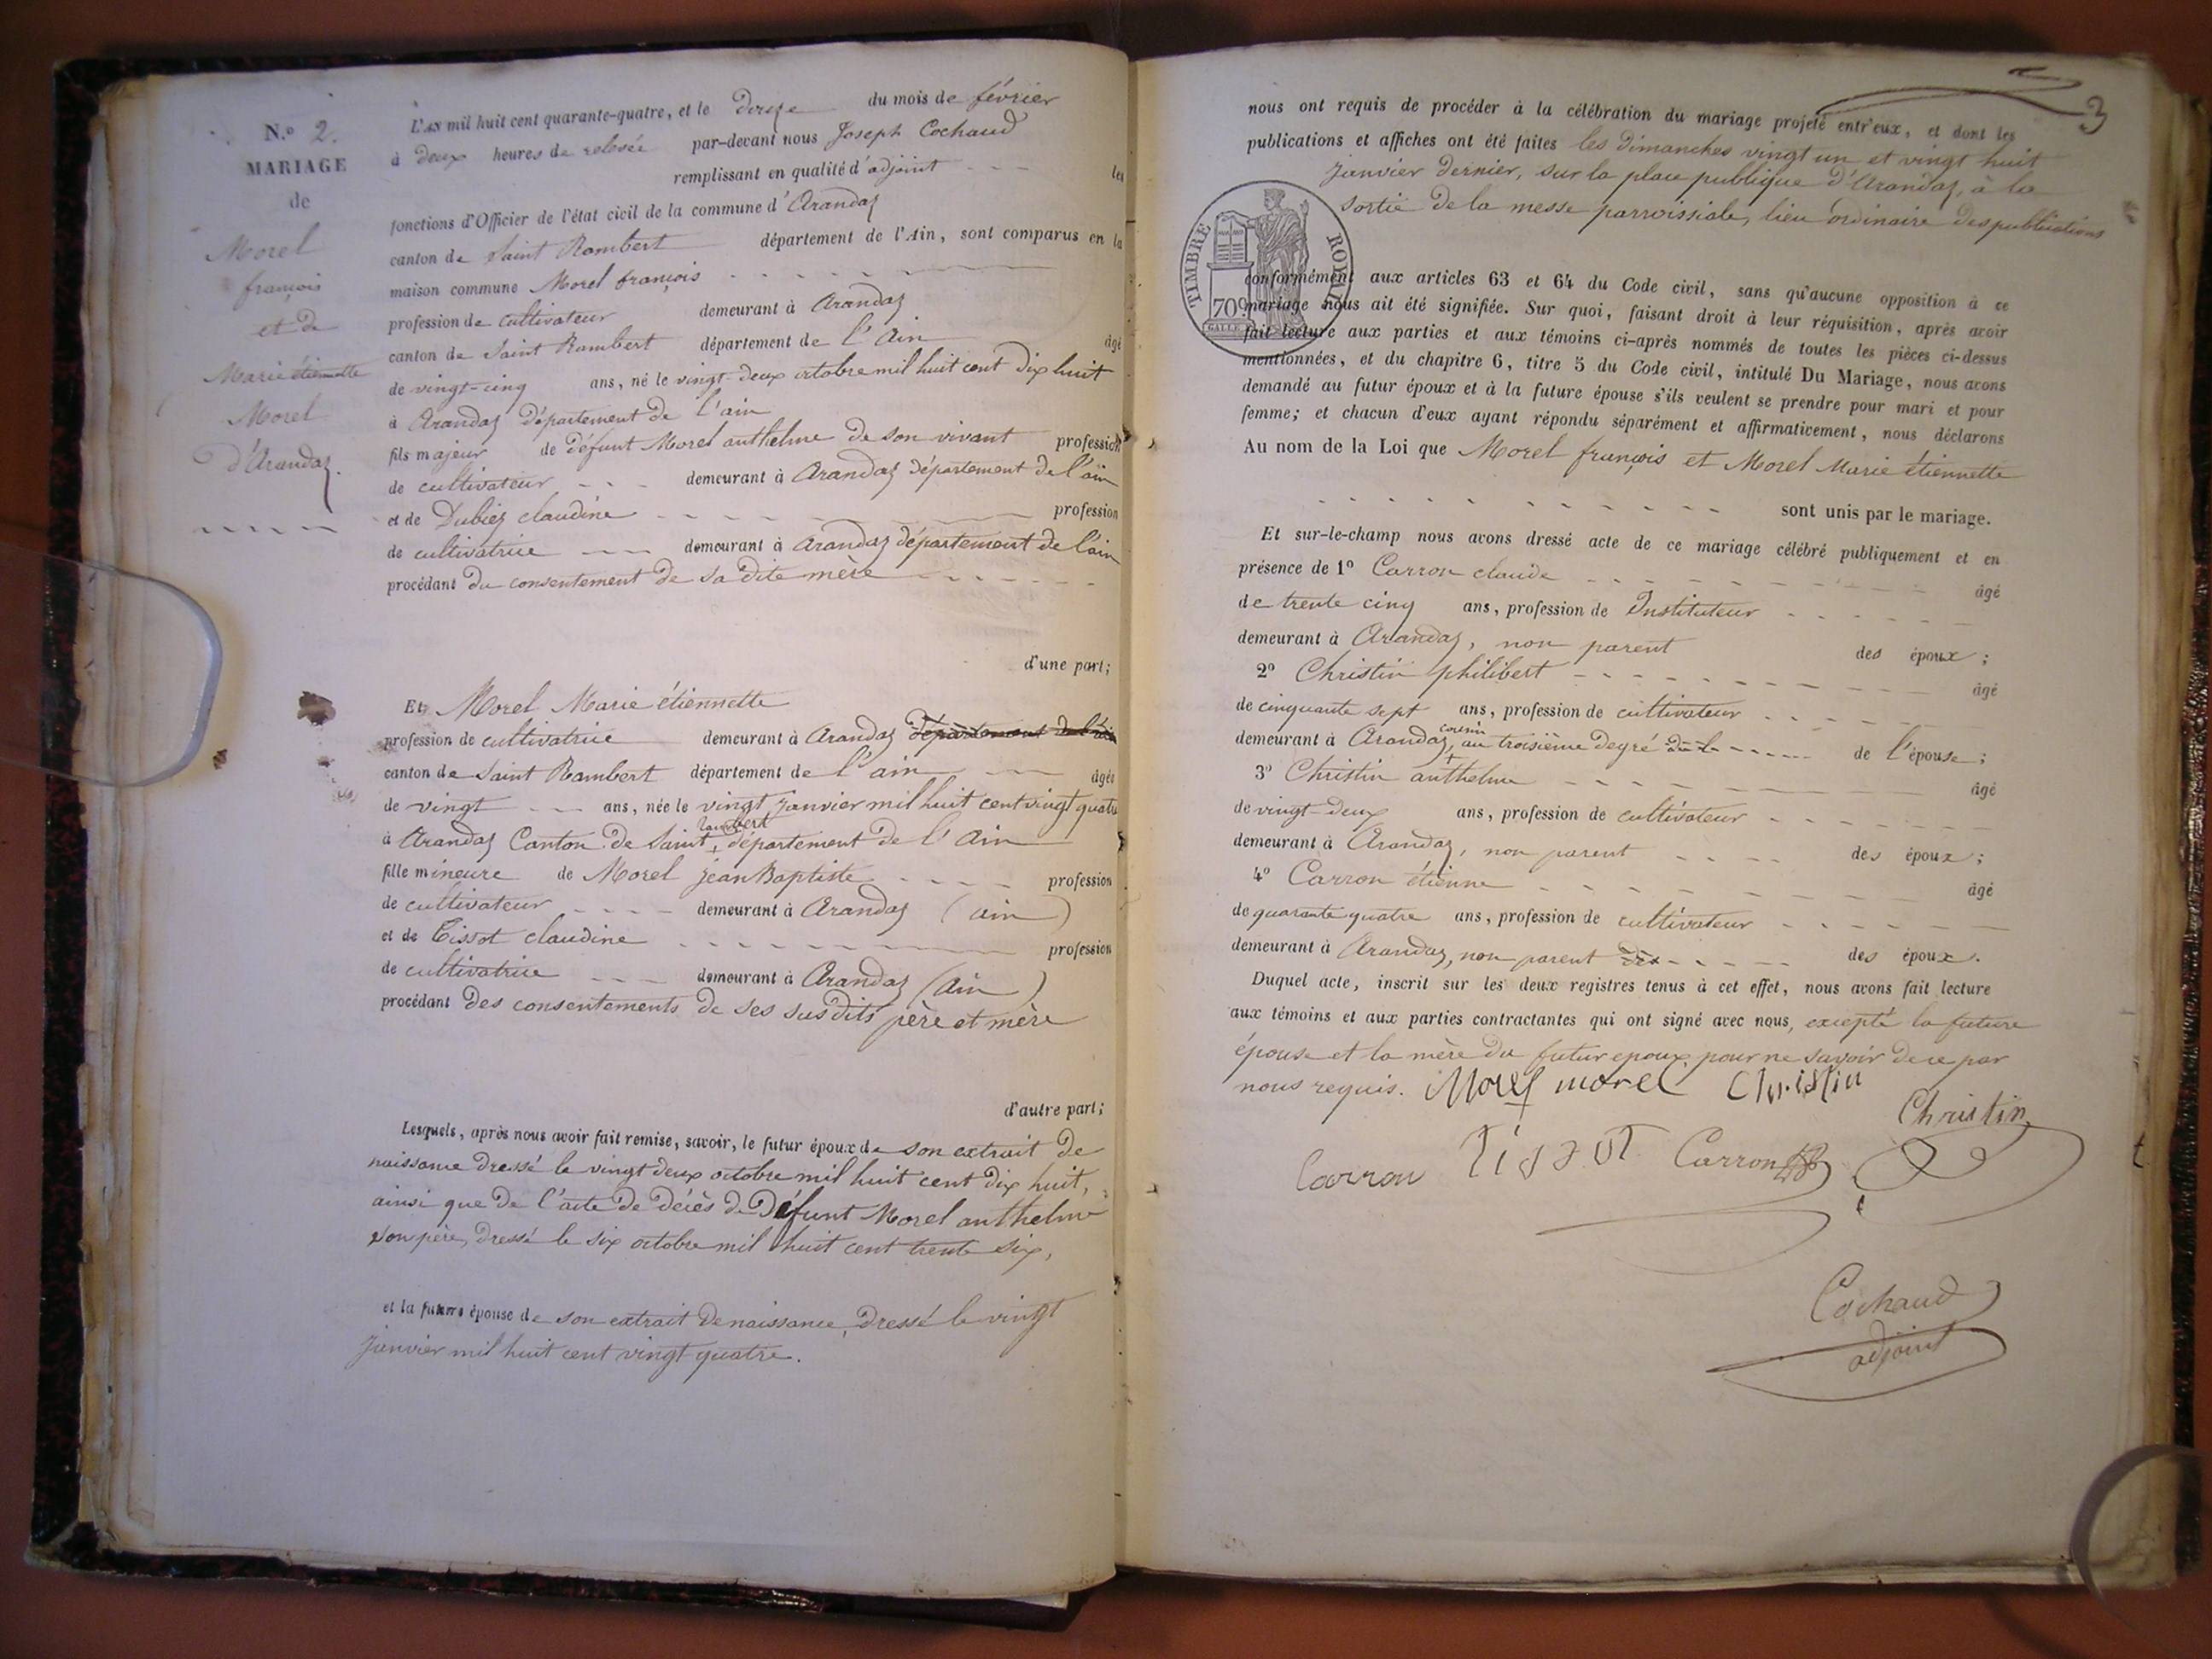 N.o 2.
MARIAGE
de
Morel
françois
et de
Marie étiennette
Morel
d'Arandaz.
L'AN mil huit cent quarante-quatre, et le douze du mois de février
à deux heures de relevée par-devant nous Joseph Cochaud
remplissant en qualité d'adjoint les
fonctions d'Officier de l'état civil de la commune d'Arandaz
canton de Saint Rambert département de l'Ain, sont comparus en la
maison commune Morel françois
profession de cultivateur demeurant à Arandaz
canton de Saint Rambert département de l'Ain âgé
de vingt-cinq ans, né le vingt-deux octobre mil huit cent dix huit
à Arandaz département de l'ain
fils majeur de défunt Morel anthelme de son vivant profession
de cultivateur demeurant à Arandaz département de l'ain
et de Dubiez claudine profession
de cultivatrice demeurant à Arandaz département de l'ain
procédant du consentement de sa dite mère
d'une part;
Et Morel Marie étiennette
profession de cultivatrice demeurant à Arandaz département de l'ain
canton de Saint Rambert département de l'ain âgée
de vingt ans, née le vingt janvier mil huit cent vingt quatre
rambert
à Arandaz Canton de Saint, département de l'Ain
fille mineure de Morel jean Baptiste profession
de cultivateur demeurant à Arandaz (ain)
et de Tissot claudine profession
de cultivatrice demeurant à Arandaz (Ain)
procédant des consentements de ses susdits père et mère
d'autre part;
Lesquels, après nous avoir fait remise, savoir, le futur époux de son extrait de
naissance dressé le vingt deux octobre mil huit cent dix huit,
ainsi que de l'acte de décès de Défunt Morel anthelme
son père, dressé le six octobre mil huit cent trente six,
et la future épouse de son extrait de naissance, dressé le vingt
janvier mil huit cent vingt quatre.
3
nous ont requis de procéder à la célébration du mariage projeté entr'eux, et dont les
publications et affiches ont été faites les dimanches vingt un et vingt huit
janvier dernier, sur la place publique d'Arandaz, à la
sortie de la messe parroissiale, lieu ordinaire des publications
TIMBRE ROYAL
70c
conformément aux articles 63 et 64 du Code civil, sans qu'aucune opposition à ce
mariage nous ait été signifiée. Sur quoi, faisant droit à leur réquisition, après avoir
fait lecture aux parties et aux témoins ci-après nommés de toutes les pièces ci-dessus
mentionnées, et du chapitre 6, titre 5 du Code civil, intitulé Du Mariage, nous avons
demandé au futur époux et à la future épouse s'ils veulent se prendre pour mari et pour
femme; et chacun d'eux ayant répondu séparément et affirmativement, nous déclarons
Au nom de la Loi que Morel françois et Morel Marie étiennette
sont unis par le mariage.
Et sur-le-champ nous avons dressé acte de ce mariage célébré publiquement et en
présence de 1o Carron claude âgé
de trente cinq ans, profession de Instituteur
demeurant à Arandaz, non parent des époux;
2o Christin philibert âgé
de cinquante sept ans, profession de cultivateur
cousin
demeurant à Arandaz, au troisième degré de l'épouse;
3o Christin anthelme âgé
de vingt-deux ans, profession de cultivateur
demeurant à Arandaz, non parent des époux;
4o Carron étienne âgé
de quarante quatre ans, profession de cultivateur
demeurant à Arandaz, non parent des des époux.
Duquel acte, inscrit sur les deux registres tenus à cet effet, nous avons fait lecture
aux témoins et aux parties contractantes qui ont signé avec nous, excepté la future
épouse et la mère du futur epoux pour ne savoir de ce par
nous requis. Morel morel Christin
Christin
Carron Tissot Carron
Cochaud
adjoint